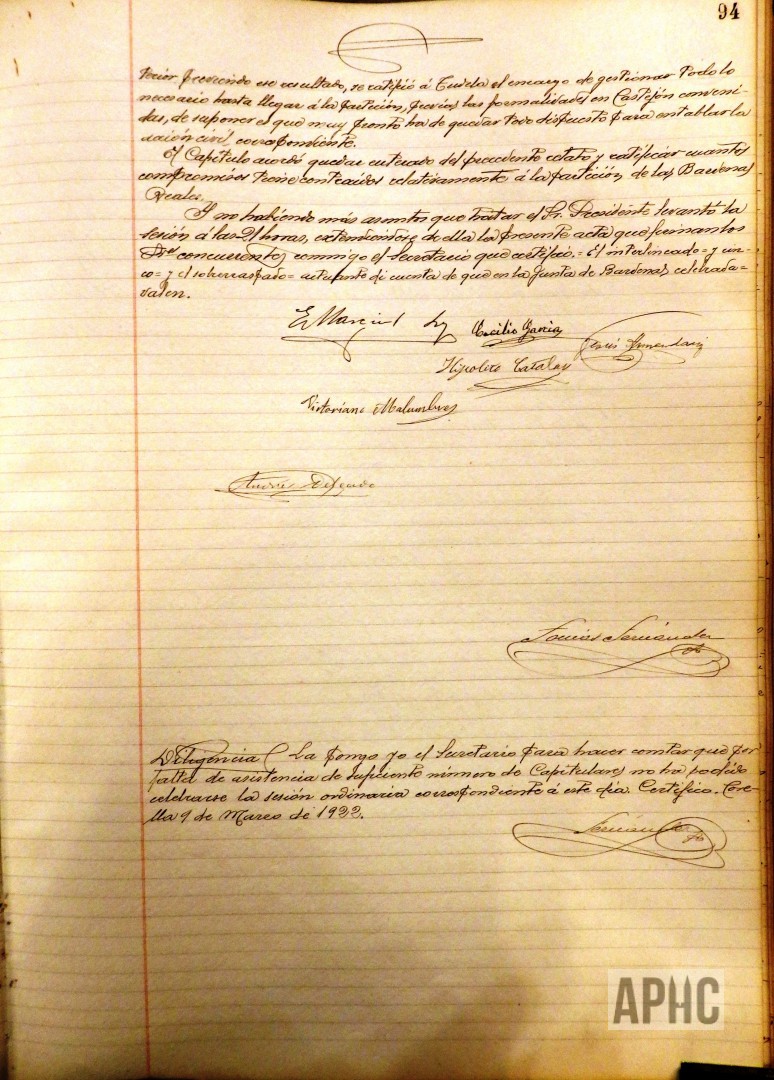 94
terior pidiendo ese resultado, se ratificó á Tudela el encargo de gestionar todo lo
necesario hasta llegar á la partición, previas las formalidades en Castejón conveni-
das, de suponer es que muy pronto ha de quedar todo dispuesto para entablar la
acción civil correspondiente.
El Capítulo acordó quedar enterado del precedente relato y ratificar cuantos
compromisos tiene contraidos relativamente á la partición de las Bardenas
Reales.
Y no habiendo más asuntos que tratar el Sr. Presidente levantó la
sesión á las 21 horas, extendiéndose de ella la presente acta que firman los
Sres concurrentes conmigo el Secretario que certifico. = El interlineado = y
= y el sobreraspado = di cuenta de que en la Junta de Bardenas celebrada =
valen.
E Marcial Cecilio Garcia
Hipolito Catalan
Victoriano Malumbres
Andrés Delgado
Diligencia ( La pongo yo el Secretario para hacer constar que por
falta de asistencia de suficiente número de Capitulares no ha podido
celebrarse la sesión ordinaria correspondiente á este dia. Certifico. Core-
lla 9 de Marzo de 1922.
APHC